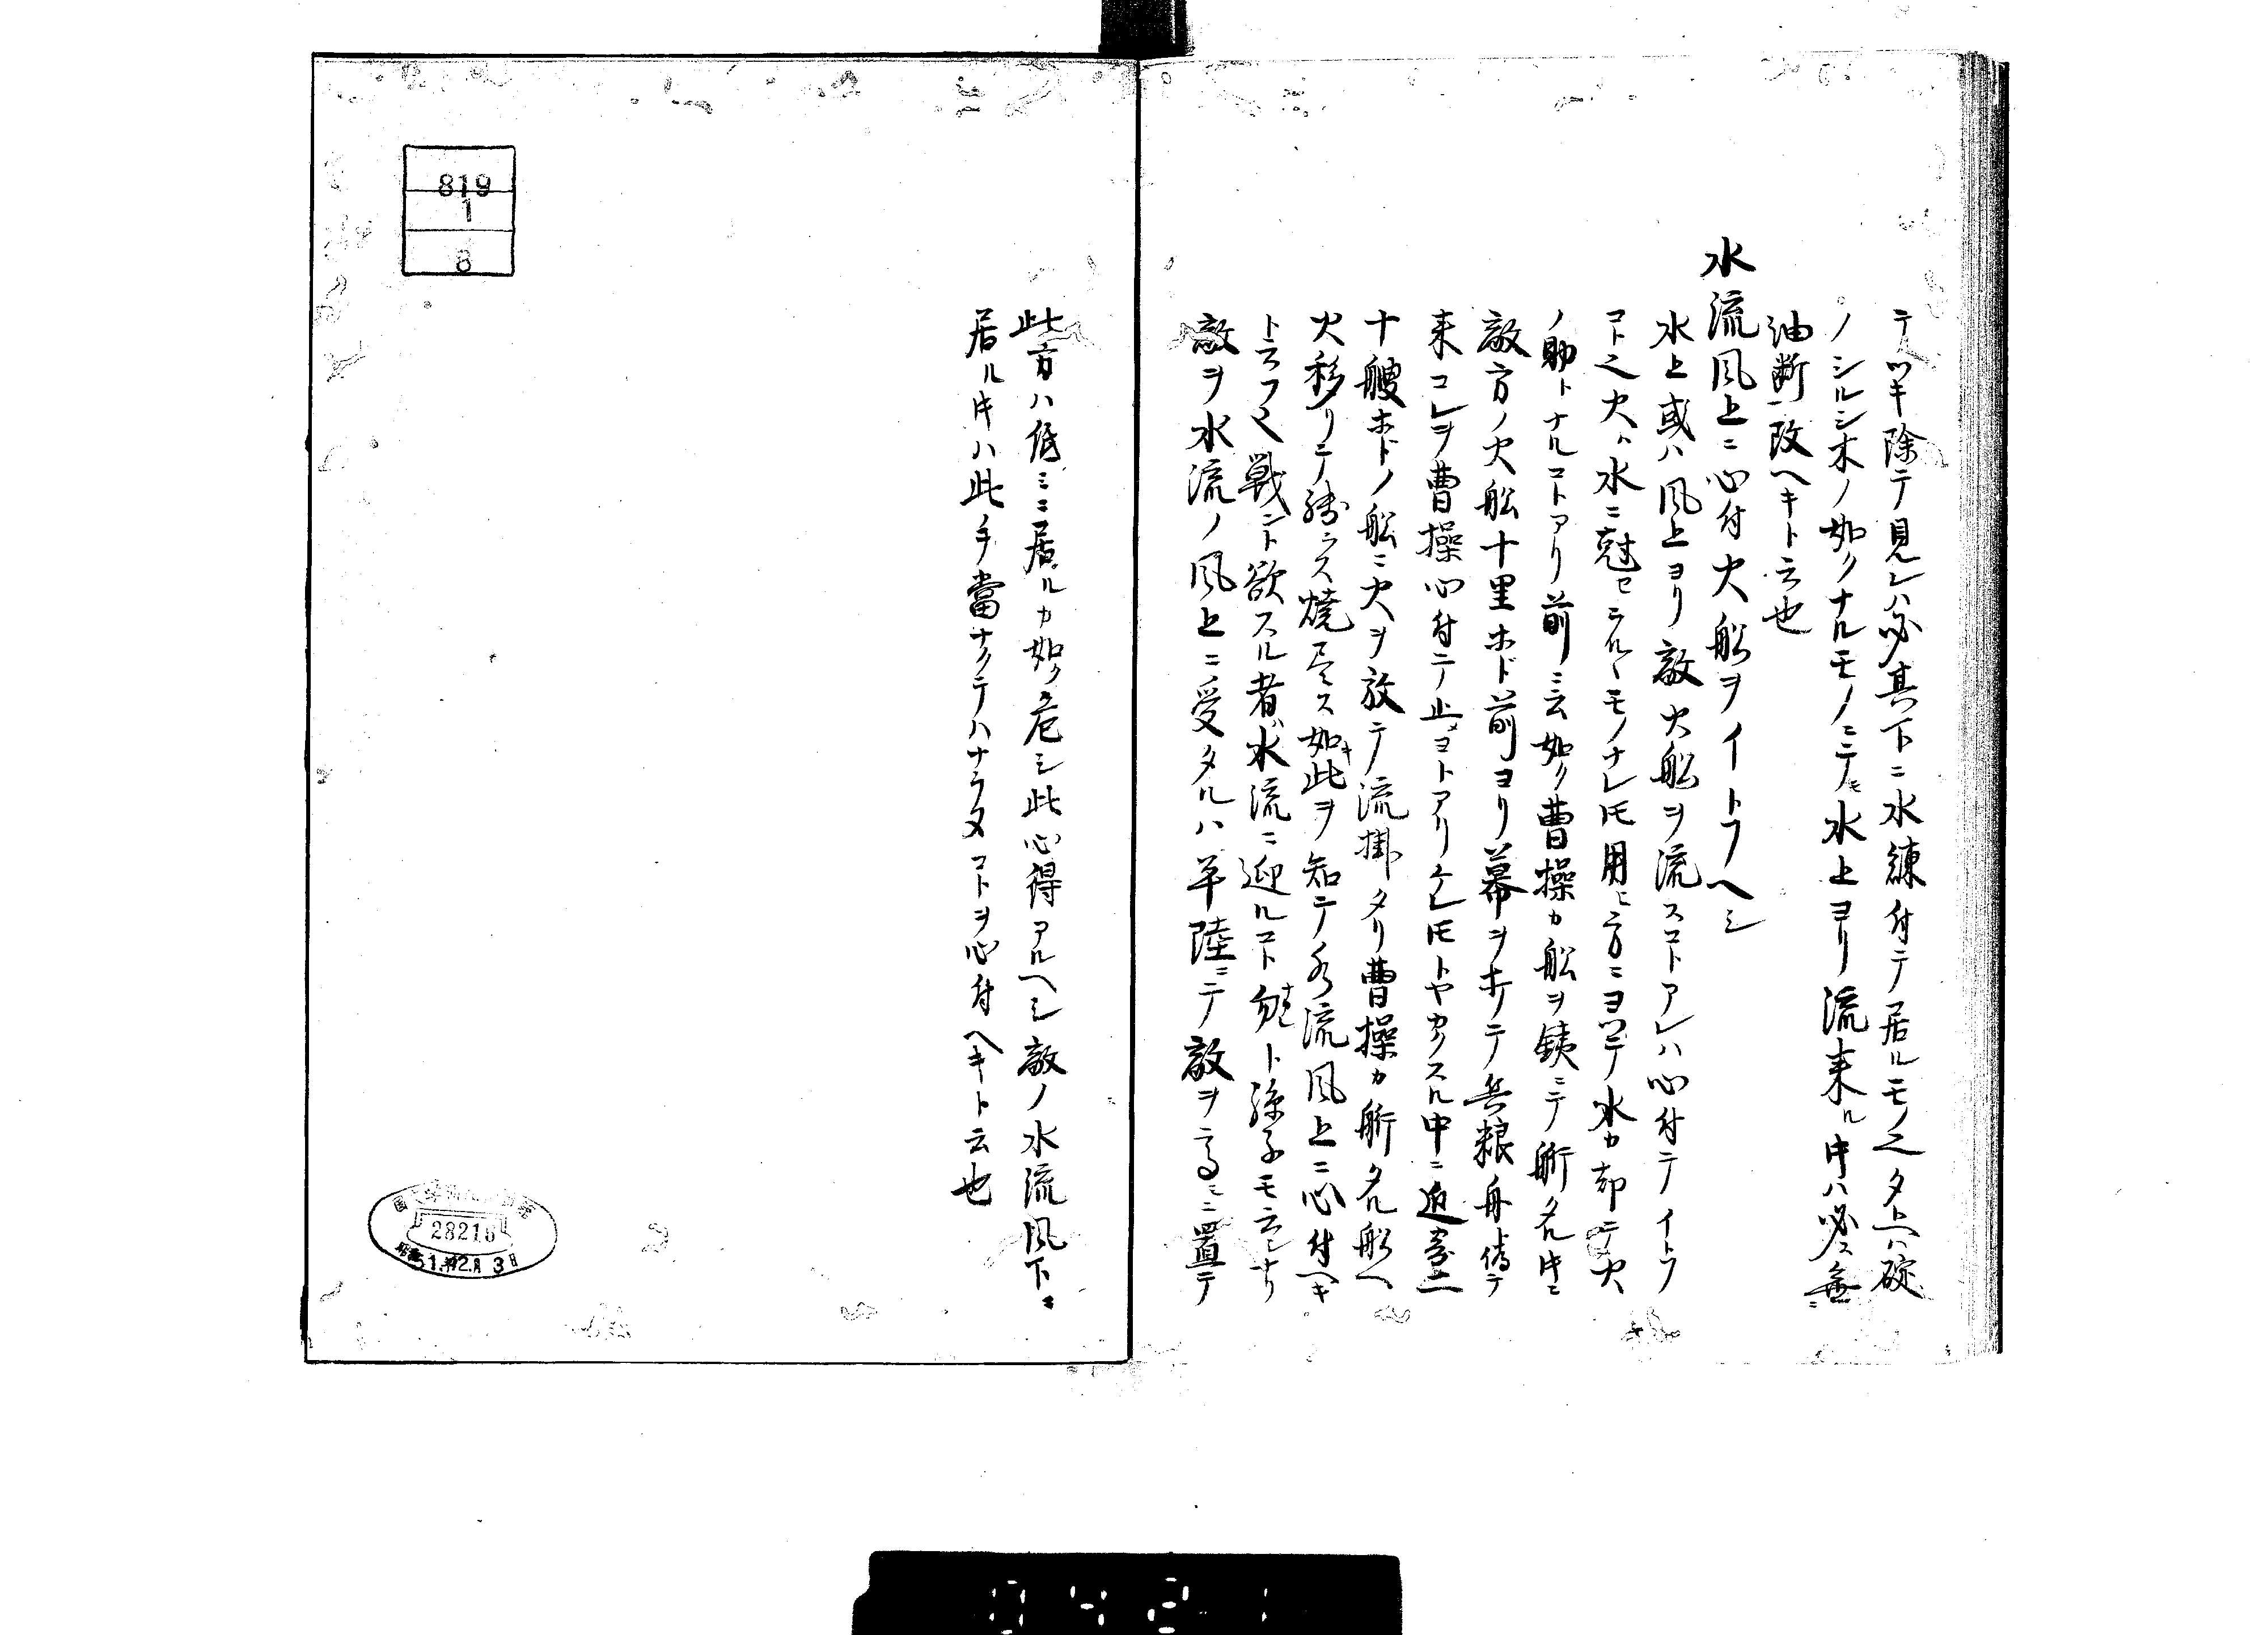 テツキ除テ見レハ必其下ニ水練付テ居ルモノ之タトヘハ碇
ノシルシ木ノ如クナルモノニテモ水上ヨリ流来ル時ハ必ス無
油断改ヘキト云也
水流風上ニ心付火船ヲイトフヘシ
水上或ハ風上ヨリ敵火船ヲ流スコトアレハ心付テイトフ
コト之火ハ水ニ尅セラルヽモノナレ𪜈用ヒ方ニヨツテ水カ却テ火
ノ助トナルコトアリ前ニ云如ク曹操カ船ヲ鉄ニテ舫タル時ニ
敵方ノ火船十里ホド前ヨリ幕ヲホリテ兵粮舟
来コレヲ曹操心付テ止ヨトアリケレ𪜈トヤカクスル中ニ近
十艘ホドノ船ニ火ヲ放テ流掛タリ曹操カ舫タル船ヘ
火移リテ残ラス焼尽ス如此キヲ知テ水流風上ニ心付ヘキ
ト云フ之戦ント欲スル者ハ水流ニ迎ルコト勿レト孫子モ云シナリ
敵ヲ水流ノ風上ニ受タルハ平陸ニテ敵ヲ高ミニ置テ
此方ハ低ミニ居ルカ如ク危シ此心得アルヘシ敵ノ水流風下ニ
居ル時ハ此手當ナクテハナラヌコトヲ心付ヘキト云也
819
1
8
28216